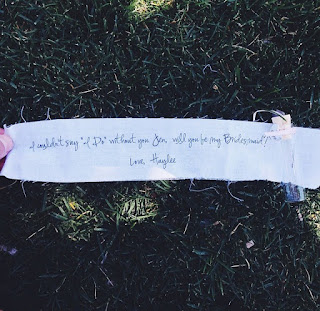 I couldn't say "I Do" without you Jen, will you be my Bridesmaid?
Love, Haylee